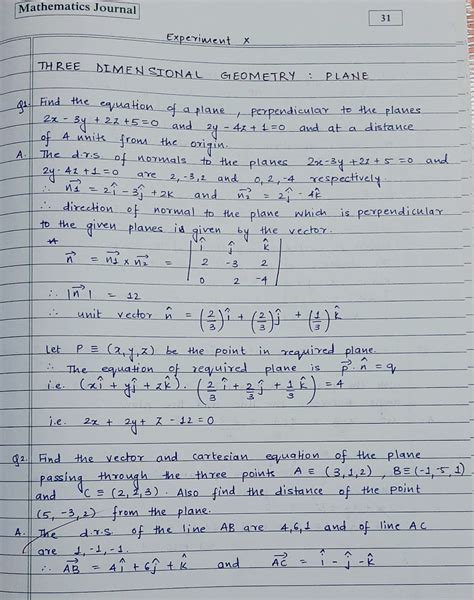 Mathematics Journal
31
Experiment x
THREE DIMENSIONAL GEOMETRY : PLANE
Q1. Find the equation of a plane, perpendicular to the planes
2x - 3y + 2z + 5 = 0 and 2y - 4z + 1 = 0 and at a distance
of 4 units from the origin.
A. The d.r.s. of normals to the planes 2x - 3y + 2z + 5 = 0 and
2y - 4z + 1 = 0 are 2, -3, 2 and 0, 2, -4 respectively.
∴ n1 = 2î - 3ĵ + 2k and n2 = 2ĵ - 4k̂
∴ direction of normal to the plane which is perpendicular
to the given planes is given by the vector.
n = n1 x n2 = | î ĵ k̂ |
| 2 -3 2 |
| 0 2 -4 |
∴ |n| = 12
∴ unit vector n̂ = (2/3) î + (2/3) ĵ + (1/3) k̂
Let P ≡ (x, y, z) be the point in required plane.
∴ The equation of required plane is p · n̂ = q
i.e. (xî + yĵ + zk̂) · (2/3 î + 2/3 ĵ + 1/3 k̂) = 4
i.e. 2x + 2y + z - 12 = 0
Q2. Find the vector and cartesian equation of the plane
passing through the three points A ≡ (3, 1, 2), B ≡ (-1, 5, 1)
and C ≡ (2, 2, 3). Also find the distance of the point
(5, -3, 2) from the plane.
A. The d.r.s of the line AB are 4, 6, 1 and of line AC
are 1, -1, -1.
∴ AB = 4î + 6ĵ + k̂ and AC = î - ĵ - k̂